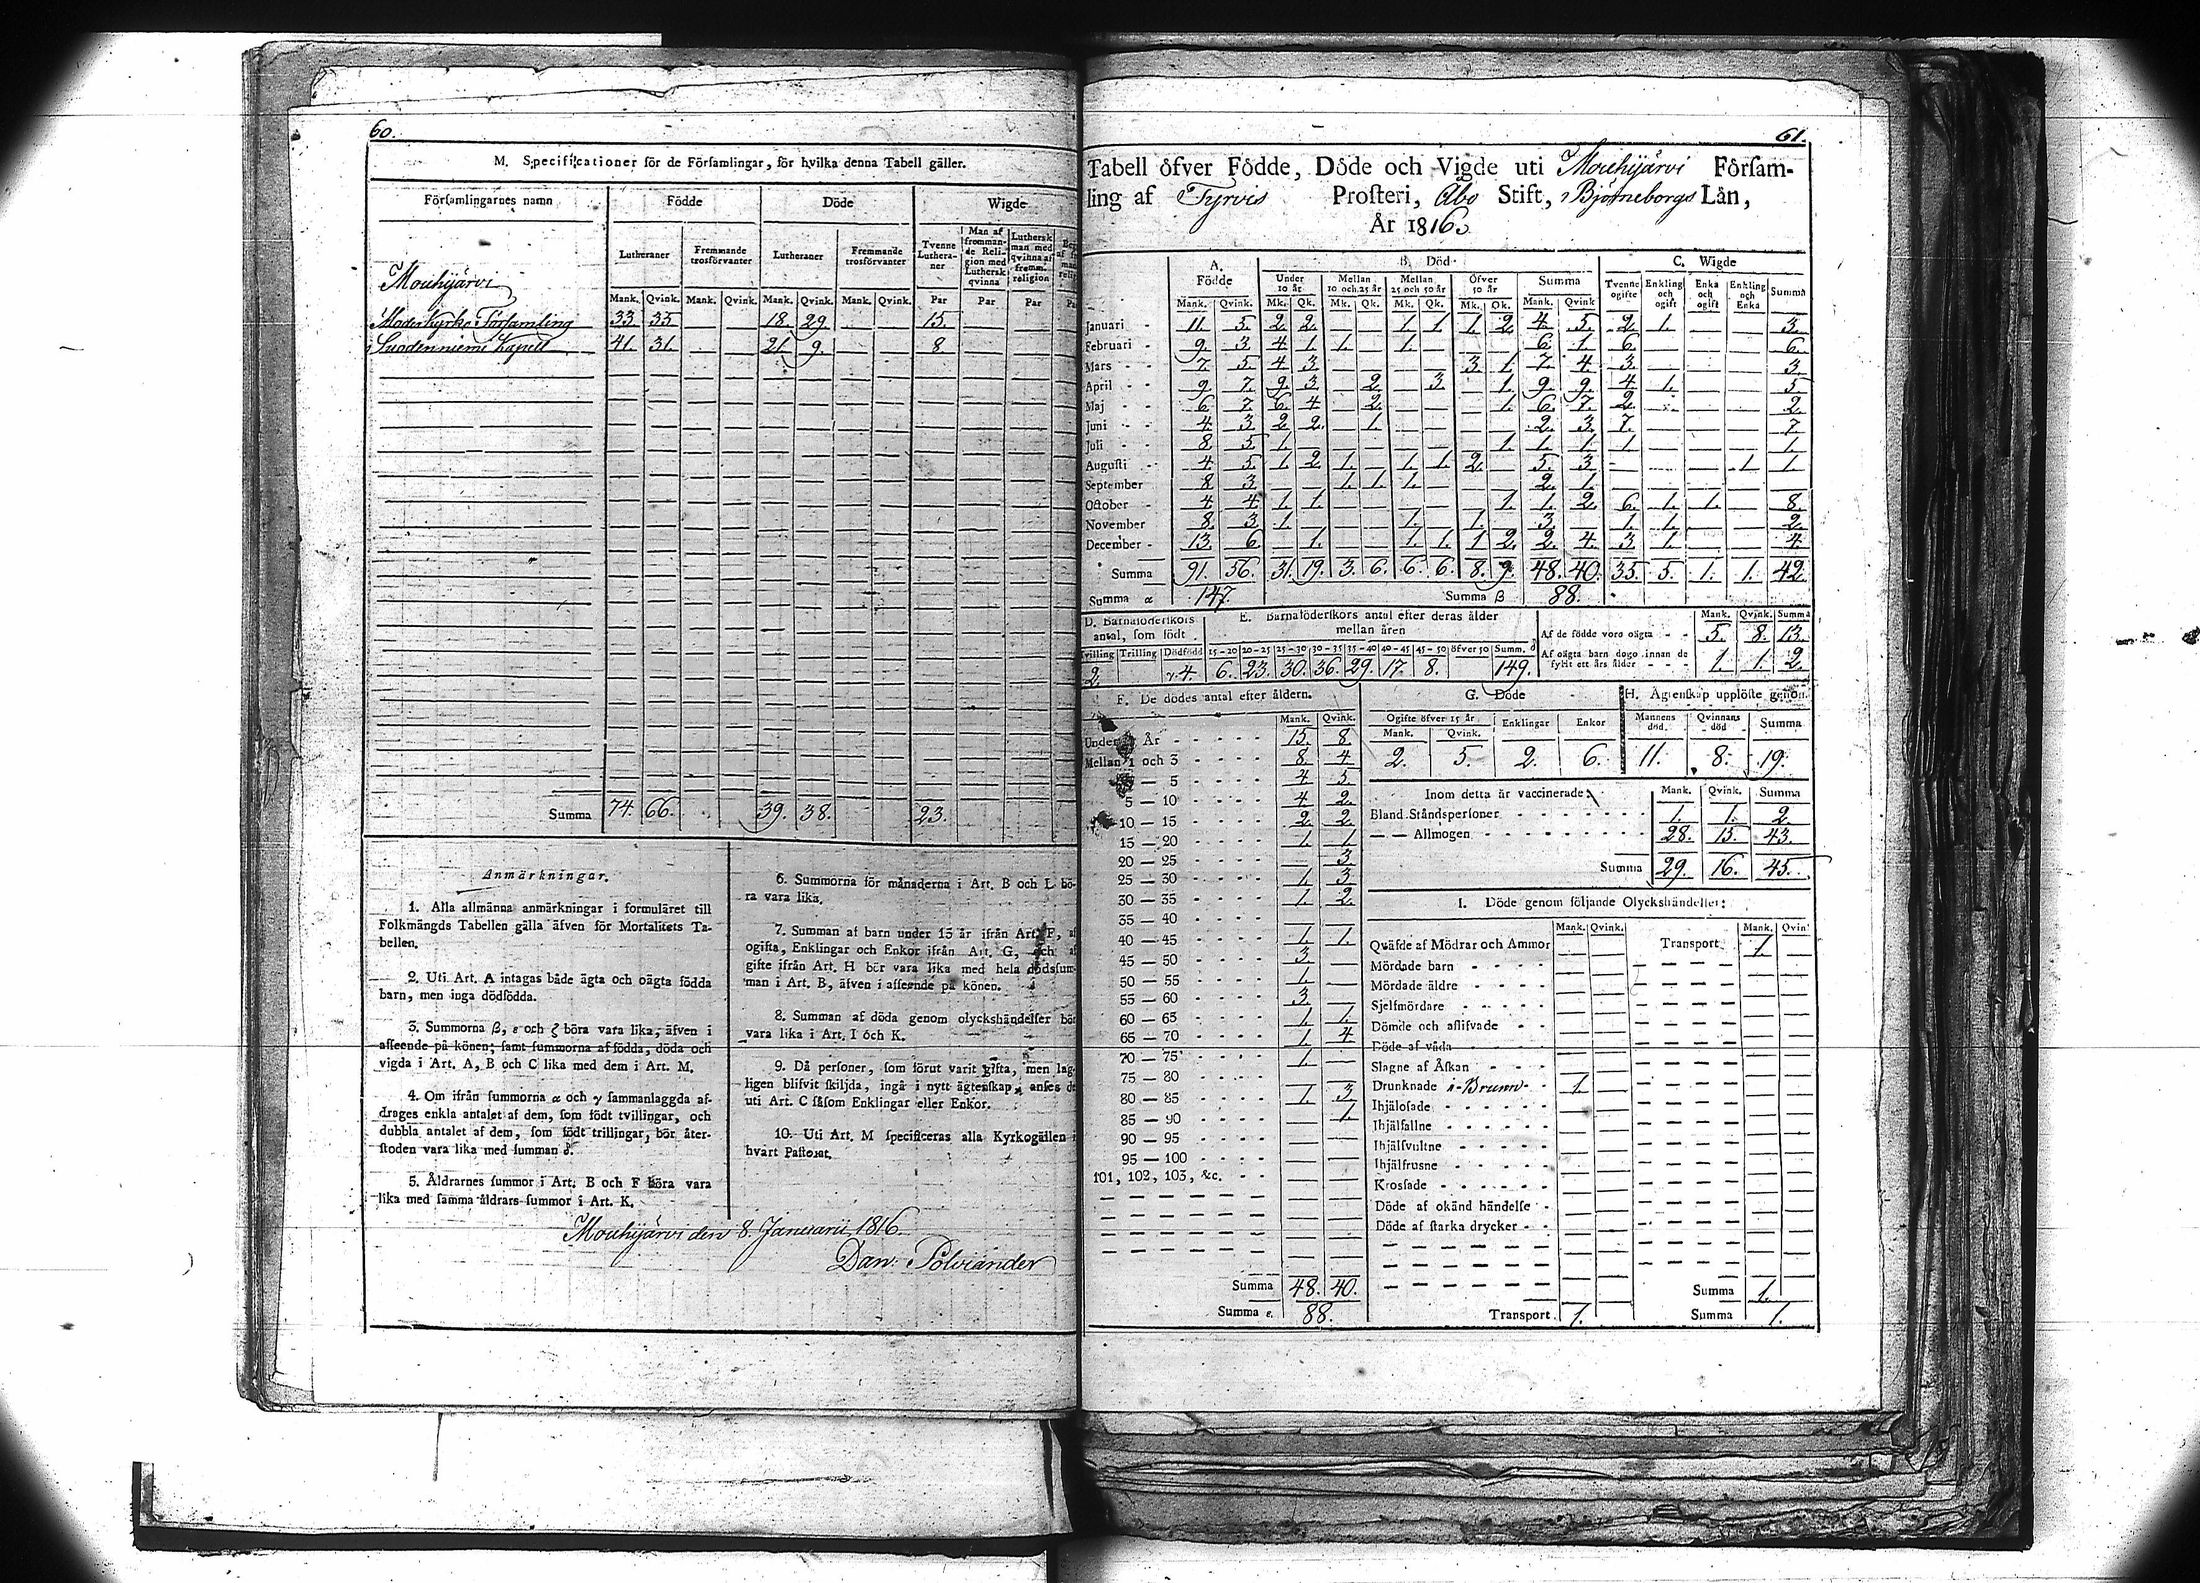 60.
M. Specificationer för de Församlingar, för hvilka denna Tabell gäller.
Församlingarnes namn Födde Döde Wigde
Lutheraner Fremmande trosförvanter Lutheraner Fremmande trosförvanter Tvenne Lutheraner Man af frommande Religion med Luthersk qvinna Luthersk man med qvinna af fremm. religion
Mank. Qvink. Mank. Qvink. Mank. Qvink. Mank. Qvink. Par Par Par
Mouhijärvi
Moder Kyrko Församling 33. 35. — — 18. 29. — — 15. — —
Suodenniemi Kapell 41. 31. — — 21. 9. — — 8. — —
Summa 74. 66. 39. 38. 23.
Anmärkningar.
1. Alla allmänna anmärkningar i formuläret till
Folkmängds Tabellen gälla äfven för Mortalitets Ta-
bellen.
2. Uti Art. A intagas både ägta och oägta födda
barn, men inga dödfödda.
3. Summorna β, ε och ζ böra vara lika, äfven i
afseende på könen; samt summorna af födda, döda och
vigda i Art. A, B och C lika med dem i Art. M.
4. Om ifrån summorna α och γ sammanlaggda af-
drages enkla antalet af dem, som födt tvillingar, och
dubbla antalet af dem, som födt trillingar, bör åter-
stoden vara lika med summan δ.
5. Åldrarnes summor i Art. B och F böra vara
lika med samma åldrars summor i Art. K.
6. Summorna för månaderna i Art. B och L bö-
ra vara lika.
7. Summan af barn under 15 år ifrån Art. F, af
ogifta, Enklingar och Enkor ifrån Art. G, och af
gifte ifrån Art. H bör vara lika med hela dödssum-
man i Art. B, äfven i afseende på könen.
8. Summan af döda genom olyckshändelser bör
vara lika i Art. I och K.
9. Då personer, som förut varit gifta, men lag-
ligen blifvit skiljda, ingå i nytt ägtenskap, anses de
uti Art. C såsom Enklingar eller Enkor.
10. Uti Art. M specificeras alla Kyrkogällen i
hvart Pastorat.
Mouhijärvi den 8. Januarii 1816.
Dan: Polviander
61.
Tabell öfver Födde, Döde och Vigde uti Mouhijärvi Församling
af Tyrvis Prosteri, Åbo Stift, Björneborgs Län,
År 1816.
A. Födde B. Död C. Wigde
Under 10 år Mellan 10 och 25 år Mellan 25 och 50 år Öfver 50 år Summa Tvenne ogifte Enkling och ogift Enka och ogift Enkling och Enka Summa
Mank. Qvink. Mk. Qk. Mk. Qk. Mk. Qk. Mk. Qk. Mank. Qvink
Januari 11. 5. 2. 2. — — 1. 1. 1. 2. 4. 5. 2. 1. — — 3.
Februari 9. 3. 4. 1. 1. — 1. — — — 6. 1. 6. — — — 6.
Mars 7. 5. 4. 3. — — — — 3. 1. 7. 4. 3. — — — 3.
April 9. 7. 9. 3. — 2. — 3. — 1. 9. 9. 4. 1. — — 5.
Maj 6. 7. 6. 4. — 2. — — — 1. 6. 7. 2. — — — 2.
Juni 4. 3. 2. 2. — 1. — — — — 2. 3. 7. — — — 7.
Juli 8. 5. 1. — — — — — — 1. 1. 1. 1. — — — 1.
Augusti 4. 5. 1. 2. 1. — 1. 1. 2. — 5. 3. — — — 1. 1.
September 8. 3. — — 1. 1. 1. — — — 2. 1. — — — —
October 4. 4. 1. 1. — — — — — 1. 1. 2. 6. 1. 1. — 8.
November 8. 3. 1. — — — 1. — 1. — 3. — 1. 1. — — 2.
December 13. 6. — 1. — — 1. 1. 1. 2. 2. 4. 3. 1. — — 4.
Summa 91. 56. 31. 19. 3. 6. 6. 6. 8. 9. 48. 40. 35. 5. 1. 1. 42.
Summa α 147. Summa β 88.
D. Barnaföderskors antal, som födt
Tvilling Trilling Dödfödd
2. γ. 4.
E. Barnaföderskors antal efter deras ålder mellan åren
15-20 20-25 25-30 30-35 35-40 40-45 45-50 öfver 50 Summ. δ
6. 23. 30. 36. 29. 17. 8. 149.
Mank. Qvink. Summa
Af de födde voro oägta 5. 8. 13.
Af oägta barn dogo innan de fyllt ett års ålder 1. 1. 2.
F. De dödes antal efter åldern.
Mank. Qvink.
Under 1 År 15. 8.
Mellan 1 och 3 8. 4.
— 5 4. 5.
5 — 10 4. 2.
10 — 15 2. 2.
15 — 20 1. 1.
20 — 25 — 3.
25 — 30 1. 3.
30 — 35 1. 2.
35 — 40 — —
40 — 45 1. 1.
45 — 50 3. —
50 — 55 1. —
55 — 60 3. —
60 — 65 1. 1.
65 — 70 1. 4.
70 — 75 1. —
75 — 80 — —
80 — 85 1. 3.
85 — 90 — 1.
90 — 95 — —
95 — 100 — —
101, 102, 103, &c. — —
Summa 48. 40.
Summa ε. 88.
G. Döde
Ogifte öfver 15 år Enklingar Enkor
Mank. Qvink.
2. 5. 2. 6.
H. Ägtenskap upplöste genom
Mannens död Qvinnans död Summa
11. 8. 19.
Inom detta år vaccinerade: Mank. Qvink. Summa
Bland Ståndspersoner 1. 1. 2.
— — Allmogen 28. 15. 43.
Summa 29. 16. 45.
I. Döde genom följande Olyckshändelser:
Mank. Qvink. Mank. Qvin
Qväfde af Mödrar och Ammor — — Transport 1. —
Mördade barn
Mördade äldre
Sjelfmördare
Dömde och aflifvade
Döde af våda
Slagne af Åskan
Drunknade i Brunn 1.
Ihjälosade
Ihjälfallne
Ihjälsvultne
Ihjälfrusne
Krossade
Döde af okänd händelse
Döde af starka drycker
Summa 1.
Transport 1. Summa 1.